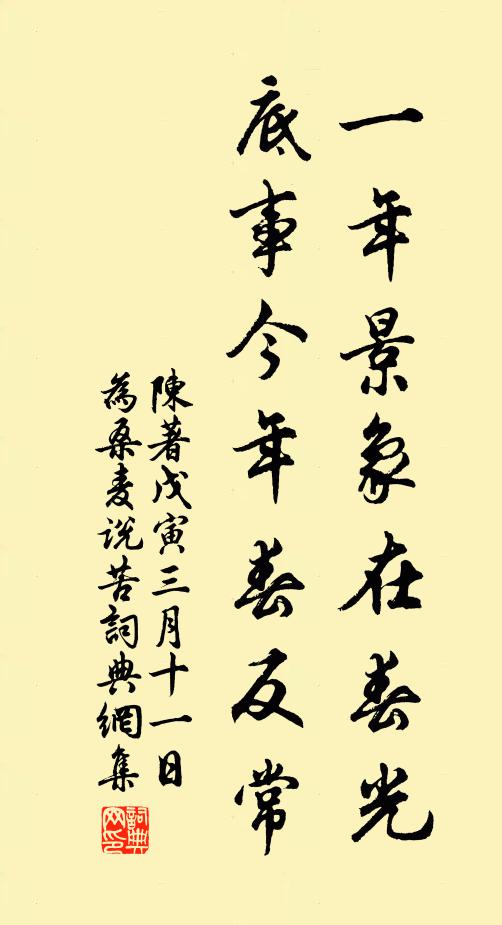 一年景象在春光
底事今年春反常
陳著戊寅三月十一日
為桑麦说苦詞典網集
詞典网印